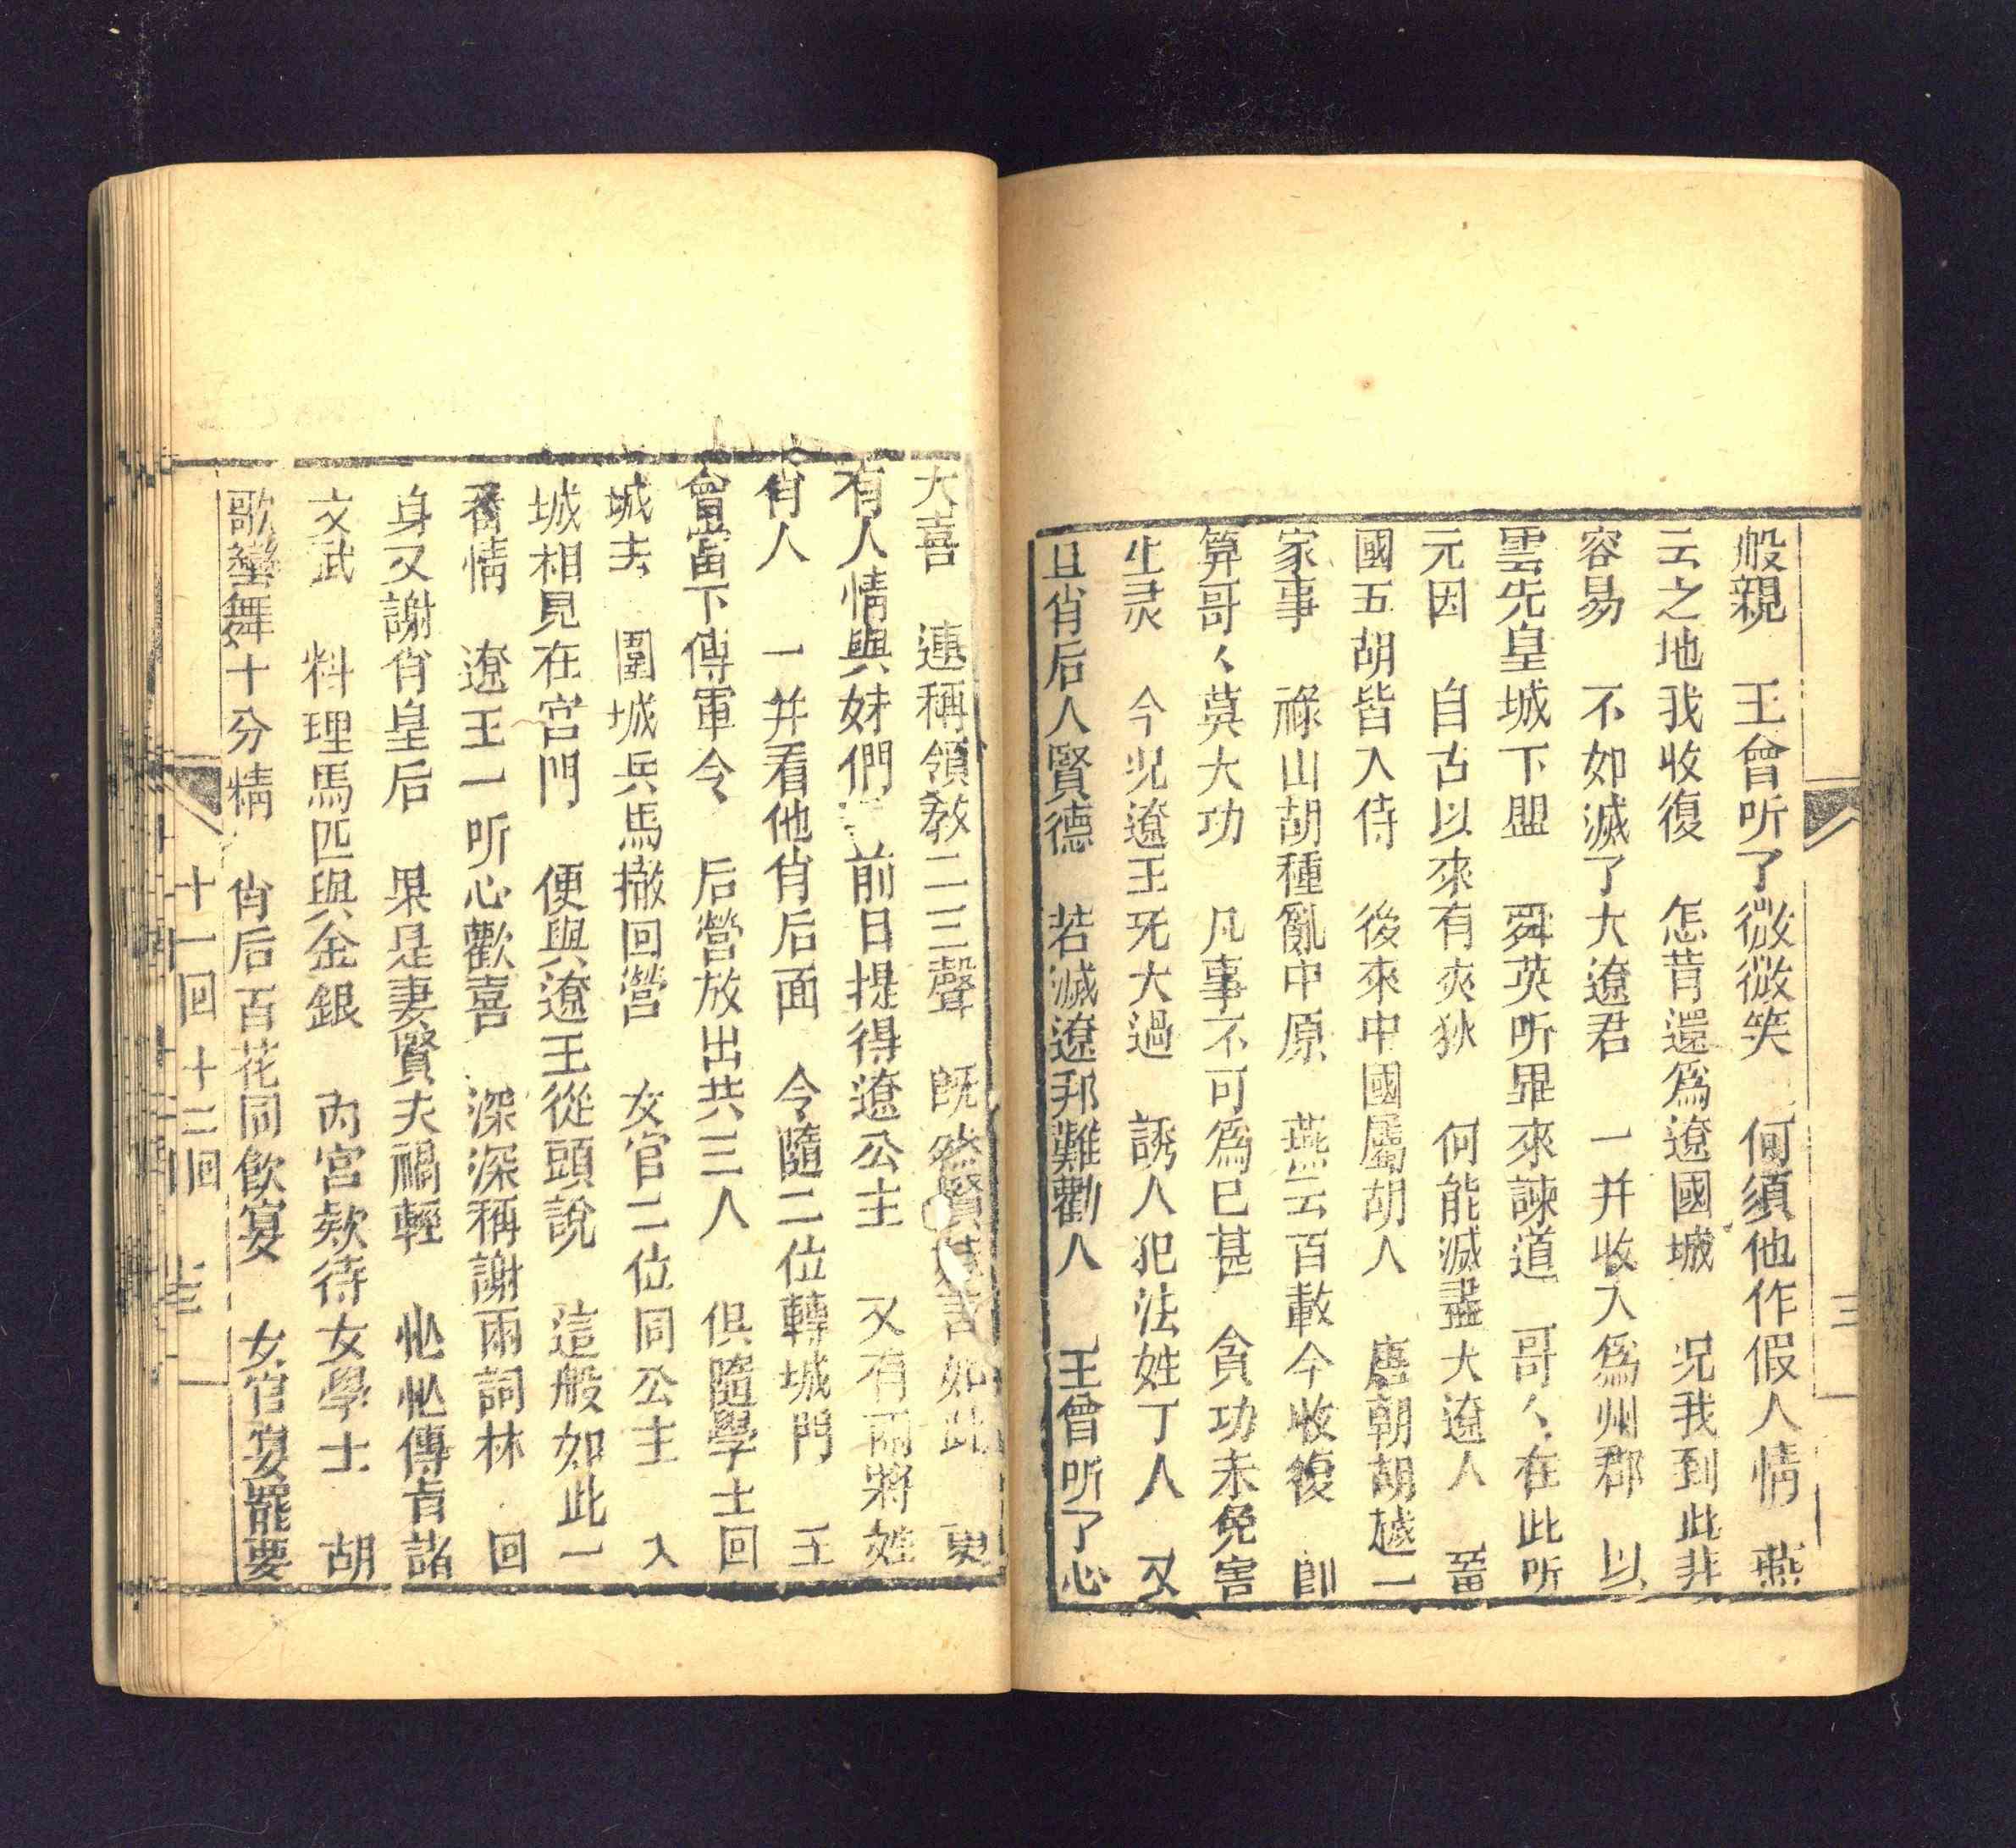 三
般親　王曾听了微微笑　何須他作假人情　燕
云之地我收復　怎肯還爲遼國城　况我到此非
容易　不如滅了大遼君　一并收入爲州郡　以
雲先皇城下盟　舜英听罪來諫道　哥〻在此所
元因　自古以來有夾狄　何能滅盡大遼人　畨
國五胡皆入侍　後來中國屬胡人　唐朝胡越一
家事　祿山胡種亂中原　燕云百載今收復　卽
算哥〻莫大功　凡事不可爲已甚　貪功未免害
生灵　今况遼王死大過　誘人犯法姓丁人　又
且肖后人賢德　若滅遼邦難勸人　王曾听了心
大喜　連稱領教二三聲　旣然賢妹言如此　更
有人情與妹們　前日提得遼公主　又有兩將姓
肖人　一并看他肖后面　令隨二位轉城門　王
曾當下傳軍令　后營放出共三人　俱隨學士回
城去　圍城兵馬撤回營　女官二位同公主　入
城相見在宮門　便與遼王從頭說　這般如此一
番情　遼王一听心歡喜　深深稱謝兩詞林　回
身又謝肖皇后　果是妻賢夫禍輕　忙忙傳旨諸
文武　料理馬匹與金銀　內宮欵待女學士　胡
歌蠻舞十分精　肖后百花同飲宴　女官宴罷要
十一回　十二回